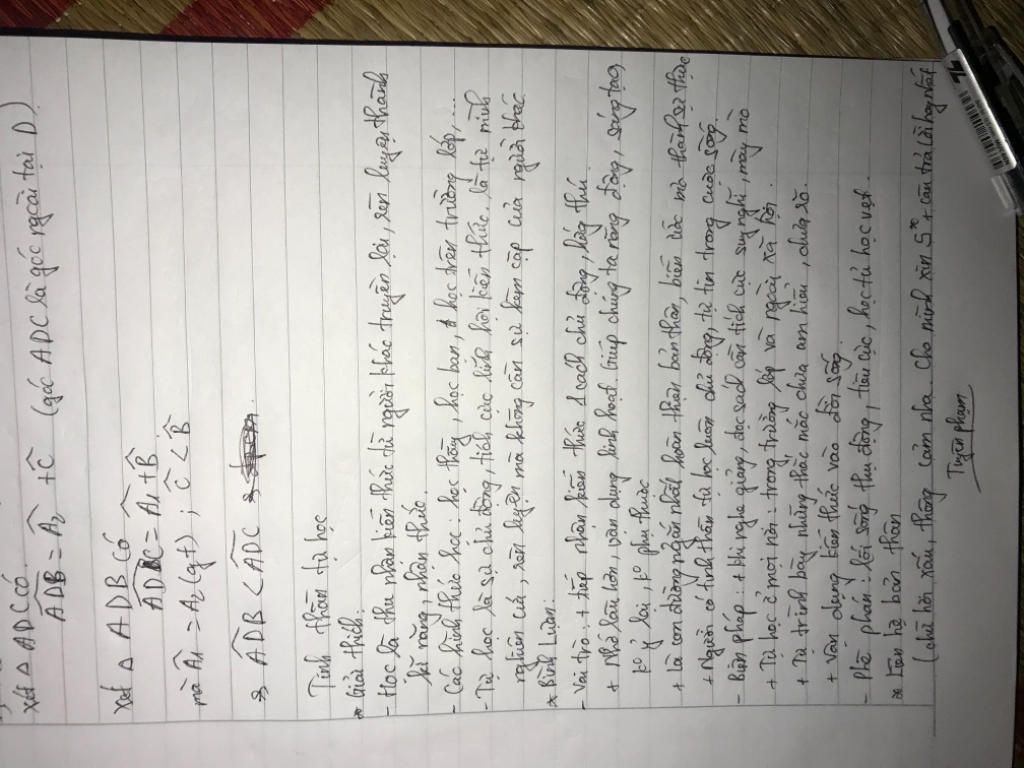 Xét △ ADC có
ADB = A₂ + C (góc ADC là góc ngoài tại D)
Xét △ ADB có
ADC = A₁ + B
mà A₁ = A₂ (gt) ; C < B
ADB < ADC
Tinh thần tự học
* Giải thích:
- Học là thu nhận kiến thức từ người khác truyền lại, rèn luyện thành
kĩ năng, nhận thức.
- Các hình thức học: học thầy, học bạn, học trên trường lớp,...
- Tự học là sự chủ động, tích cực lĩnh hội kiến thức là tự mình
nghiên cứu, rèn luyện mà không cần sự kèm cặp của người khác
* Bình luận:
- Vai trò: + tiếp nhận kiến thức 1 cách chủ động, hứng thú
+ Nhớ lâu hơn, vận dụng linh hoạt giúp chúng ta năng động, sáng tạo,
k⁰ ỷ lại, k⁰ phụ thuộc
+ Là con đường ngắn nhất hoàn thiện bản thân, biến ước mơ thành sự thực
+ Người có tinh thần tự học luôn chủ động, tự tin trong cuộc sống.
- Biện pháp: + khi nghe giảng, đọc sách cần tích cực suy nghĩ, mày mò
+ Tự học ở mọi nơi: trong trường lớp và ngoài xã hội.
+ Tự trình bày những thắc mắc chưa am hiểu, chưa rõ.
+ Vận dụng kiến thức vào đời sống
- Phê phán: lối sống thụ động, tiêu cực, học tủ học vẹt.
* Liên hệ bản thân
(chữ hơi xấu, thông cảm nha. Cho mình xin 5* + câu trả lời hay nhất
Tuyền Phạm